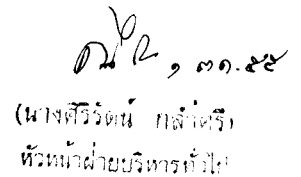 ๑ ๓๑.๕๕
(นางศิริรัตน์ กล่ำศรี)
หัวหน้าฝ่ายบริหารทั่วไป